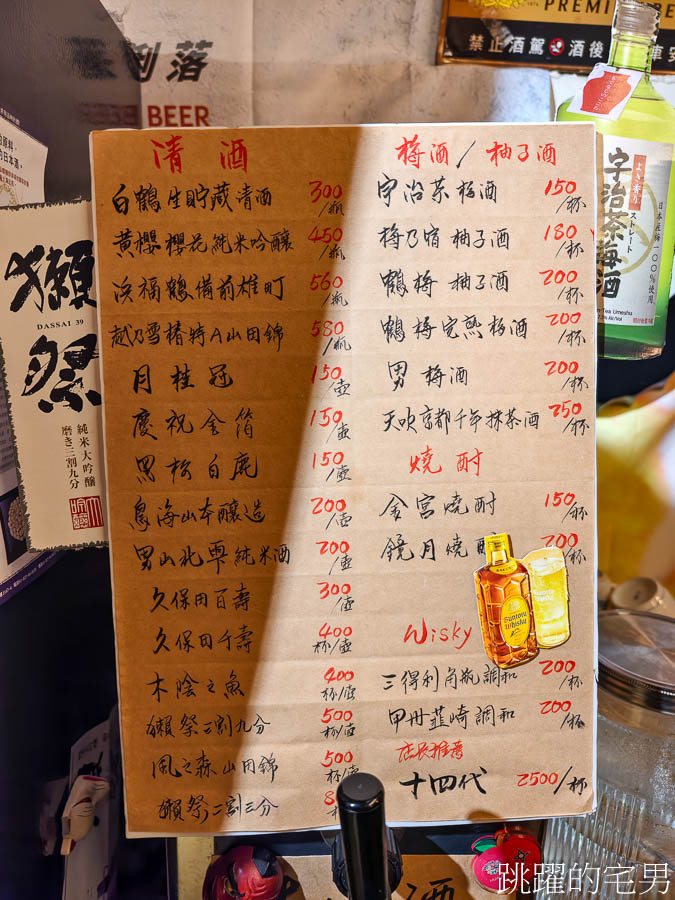 利落
BEER
PREMI
禁止酒駕
酒後
車安
獺祭
DASSAI 39
純米大吟醸
磨き三割九分
清酒
白鶴生貯蔵清酒 300/瓶
黄櫻櫻花純米吟釀 450/瓶
浜福鶴備前雄町 560/瓶
越乃雪椿特A山田錦 580/瓶
月桂冠 150/壺
慶祝金箔 150/壺
黑松白鹿 150/壺
鳥海山本釀造 200/壺
男山北雫純米酒 200/壺
久保田百壽 300/壺
久保田千壽 400 杯/壺
木陰之魚 400 杯/壺
獺祭三割九分 500 杯/壺
風之森山田錦 500 杯/壺
獺祭二割三分 8
梅酒/柚子酒
宇治茶梅酒 150/杯
梅乃宿柚子酒 180/杯
鶴梅柚子酒 200/杯
鶴梅完熟梅酒 200/杯
男梅酒 200/杯
天吹京都千年抹茶酒 250/杯
燒酎
金宮燒酎 150/杯
鏡月燒酎 200/杯
Wisky
三得利角瓶調和 200/杯
甲州韮崎調和 200/杯
店長推薦
十四代 2500/杯
Suntory
Whisky
よき香り
ストレート
宇治茶梅酒
日本産梅一〇〇%使用
Tea Umeshu
酒
跳躍的宅男